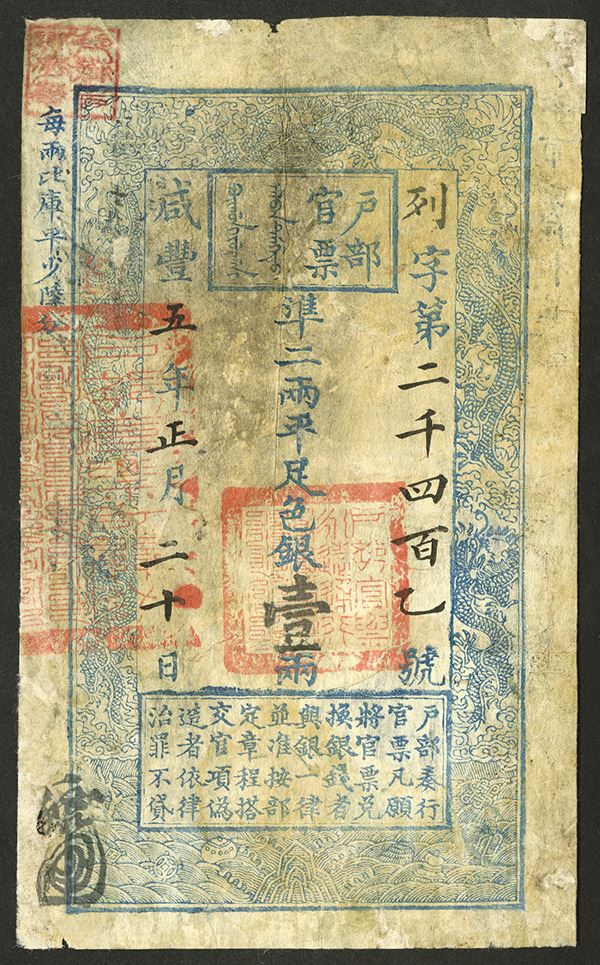 列字第二千四百乙號
戶部
官票
準二兩平足色銀壹兩
咸豐五年正月二十日
每兩比庫平少陸分
戶部奏行
官票凡願
將官票兌
換銀錢者
與銀一律
並准按部
定章程搭
交官項偽
造者依律
治罪不貸